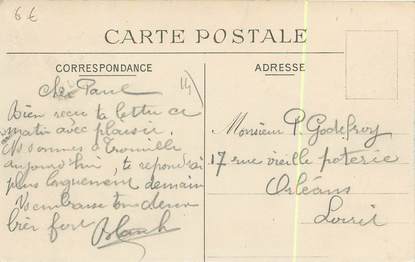 6 €
CARTE POSTALE
CORRESPONDANCE
ADRESSE
14)
Cher Paul
Bien reçu ta lettre ce
matin avec plaisir.
sommes à Trouville
aujourd'hui, te répondrai
plus longuement demain
embrasse tous deux
bien fort
Monsieur P. Godefroy
17 rue vieille poterie
Orléans
Loiret